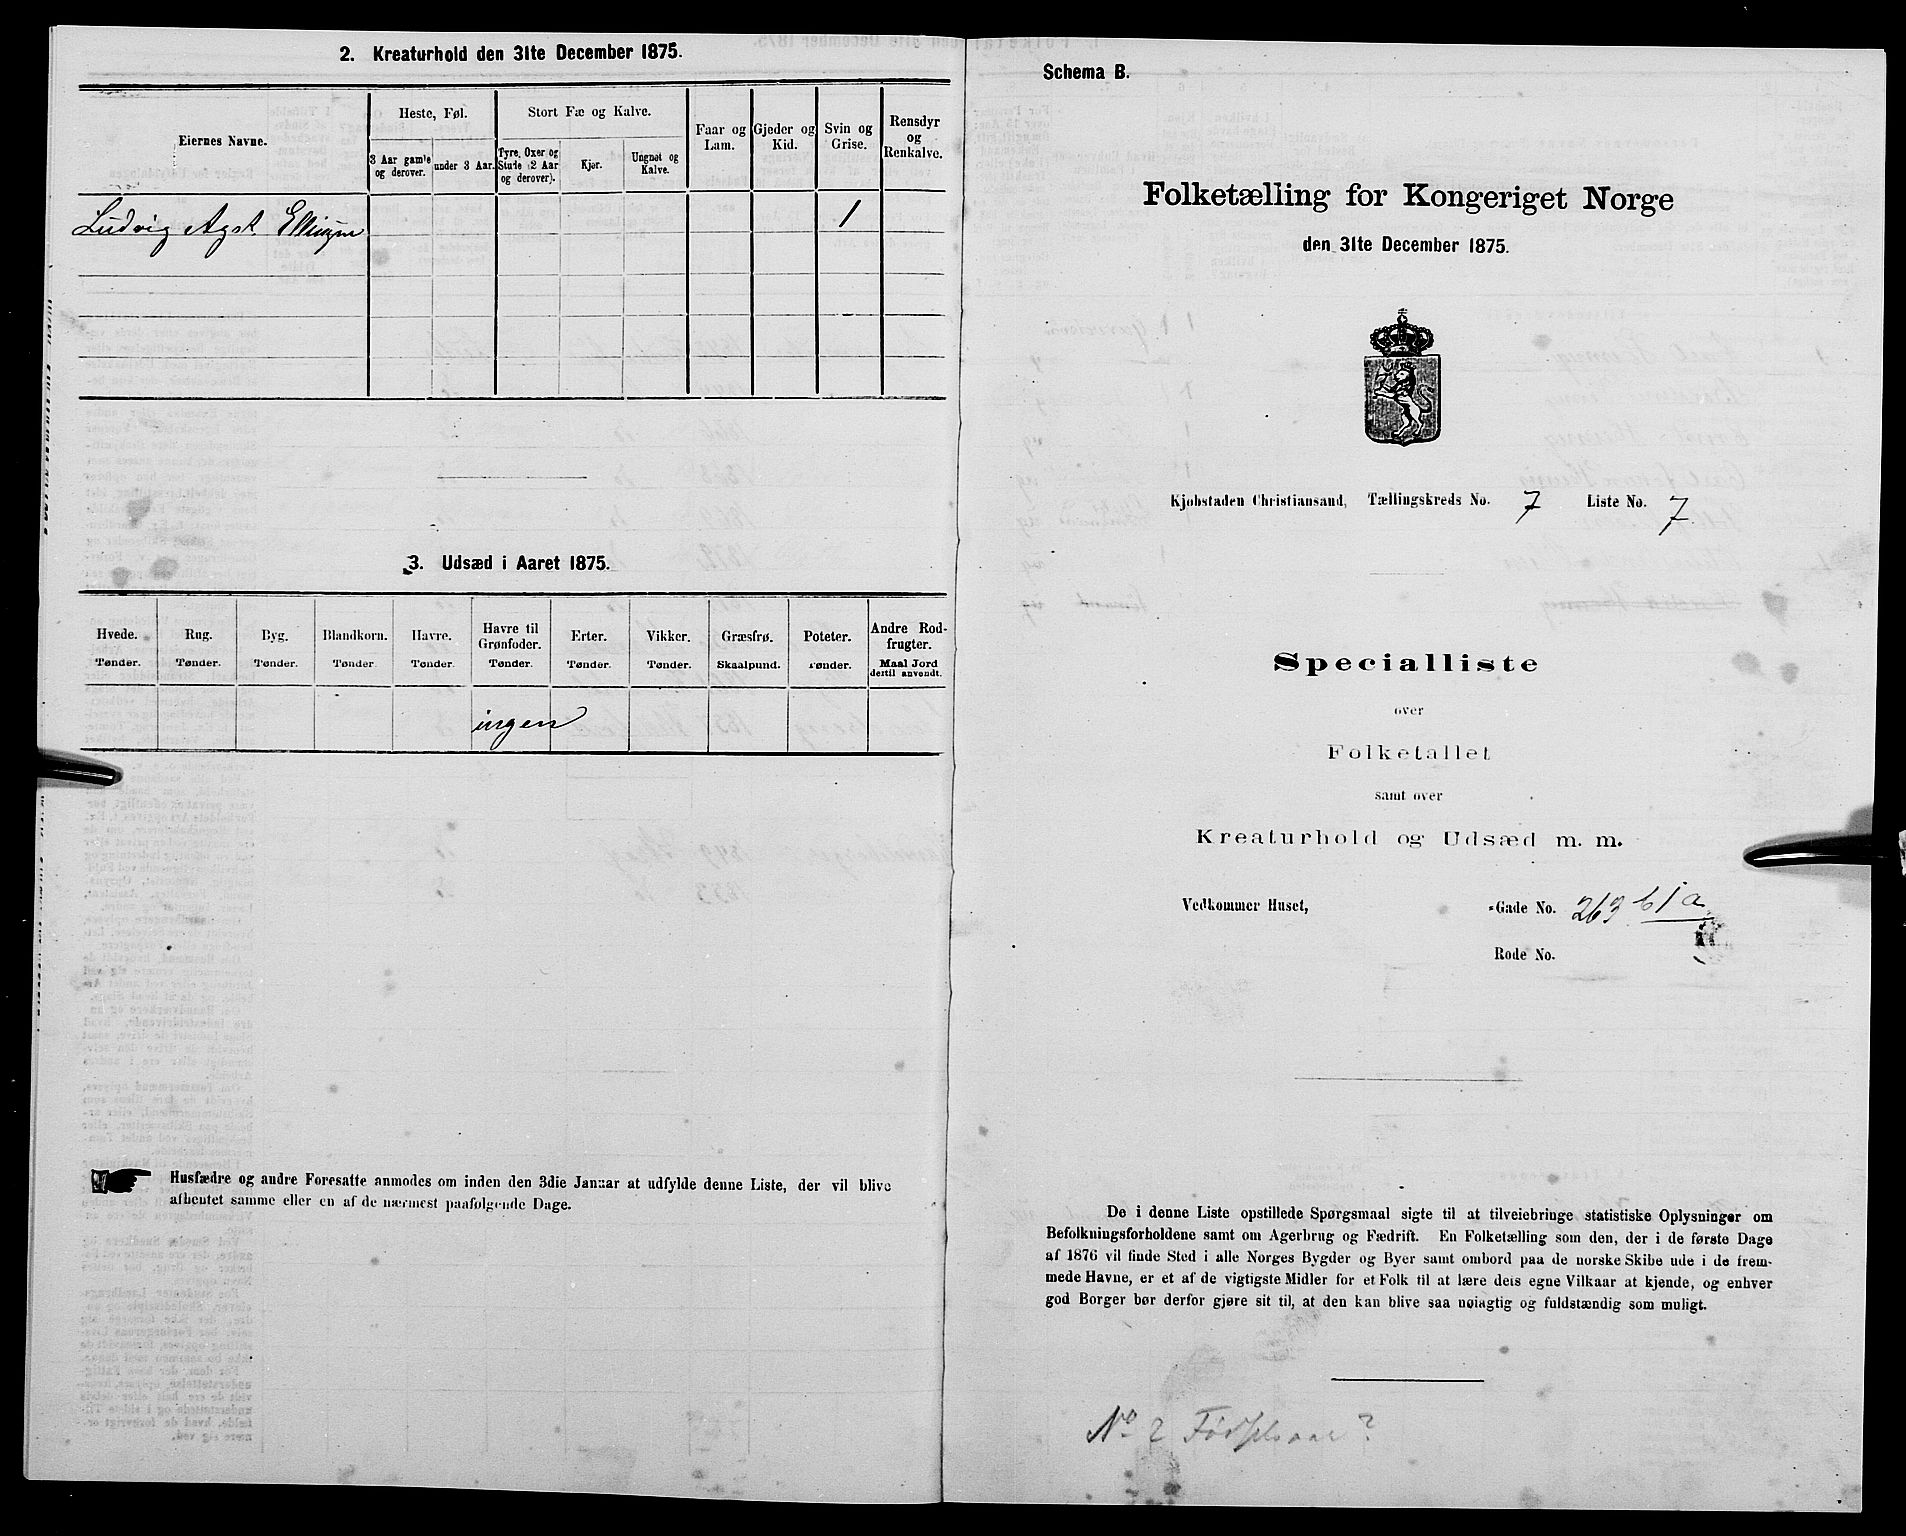 2. Kreaturhold den 31te December 1875.
Eiernes Navne.
Heste, Føl.
Stort Fæ og Kalve.
Faar og
Lam.
Gjeder og
Kid.
Svin og
Grise.
Rensdyr
og
Renkalve.
3 Aar gamle
og derover.
under 3 Aar.
Tyre, Oxer og
Stude (2 Aar
og derover).
Kjør.
Ungnøt og
Kalve.
Ludvig Agst. Ellingsen 1
3. Udsæd i Aaret 1875.
Hvede.
Tønder.
Rug.
Tønder.
Byg.
Tønder.
Blandkorn.
Tønder.
Havre.
Tønder.
Havre til
Grønfoder.
Tønder.
Erter.
Tønder.
Vikker.
Tønder.
Græsfrø.
Skaalpund.
Poteter.
Tønder.
Andre Rod-
frugter.
Maal Jord
dertil anvendt.
ingen
Husfædre og andre Foresatte anmodes om inden den 3die Januar at udfylde denne Liste, der vil blive
afhentet samme eller en af de nærmest paafølgende Dage.
Schema B.
Folketælling for Kongeriget Norge
den 31te December 1875.
Kjøbstaden Christiansand, Tællingskreds No. 7 Liste No. 7.
Specialliste
over
Folketallet
samt over
Kreaturhold og Udsæd m. m.
Vedkommer Huset, -Gade No. 263 b1a
Rode No.
De i denne Liste opstillede Spørgsmaal sigte til at tilveiebringe statistiske Oplysninger om
Befolkningsforholdene samt om Agerbrug og Fædrift. En Folketælling som den, der i de første Dage
af 1876 vil finde Sted i alle Norges Bygder og Byer samt ombord paa de norske Skibe ude i de frem-
mede Havne, er et af de vigtigste Midler for et Folk til at lære dets egne Vilkaar at kjende, og enhver
god Borger bør derfor gjøre sit til, at den kan blive saa nøiagtig og fuldstændig som muligt.
No 2 Fødselsaar?